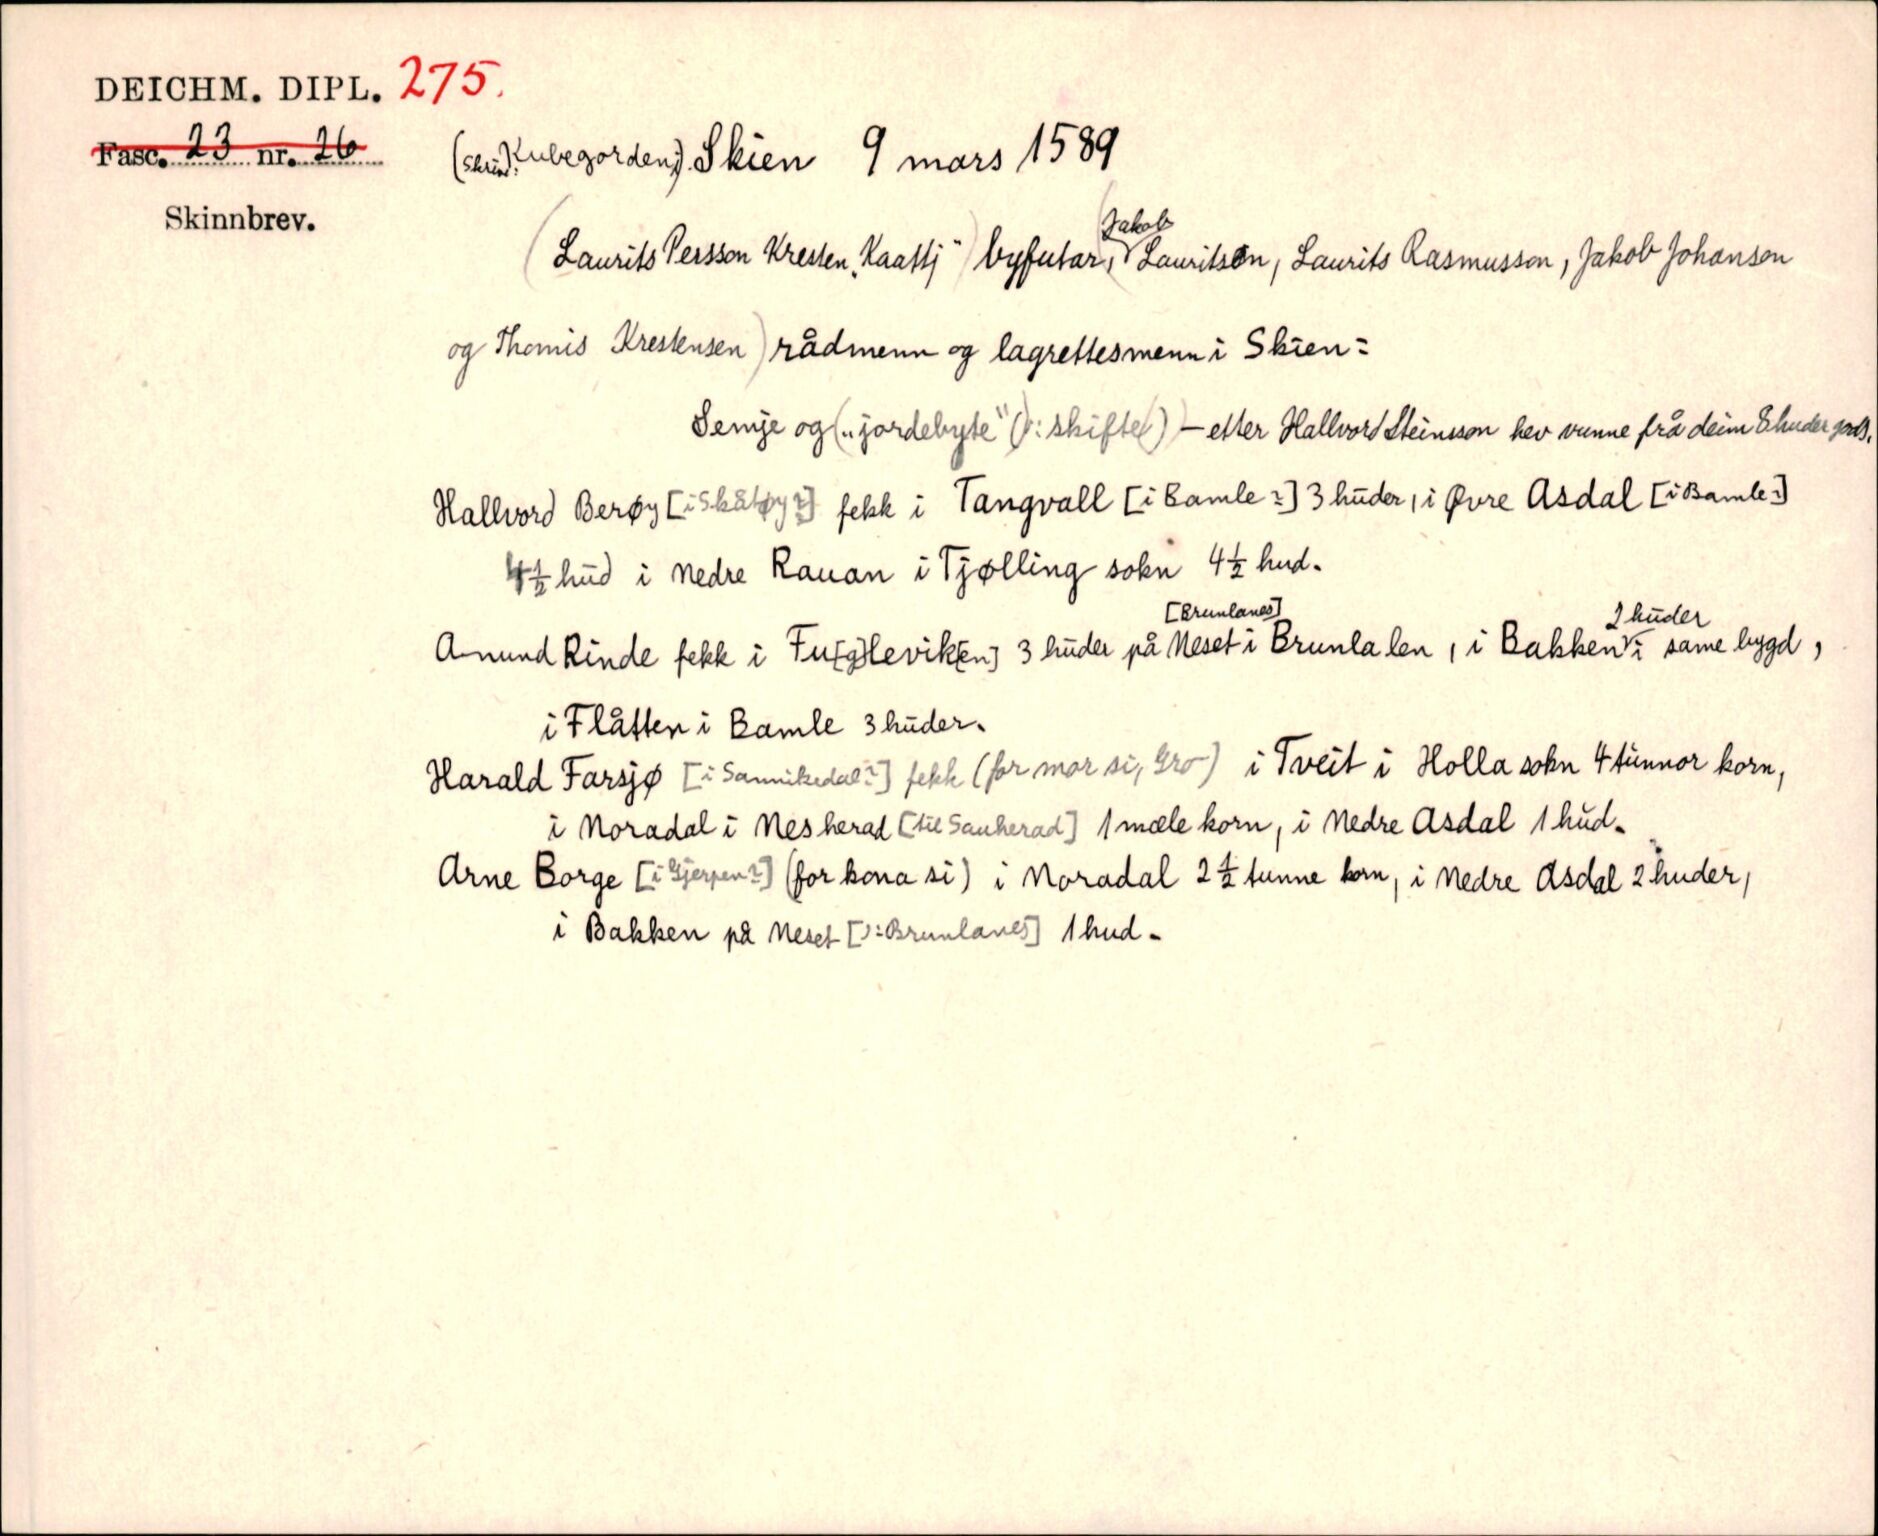 DEICHM. DIPL. 275.
Fasc. 23 nr. 26
Skinnbrev.
Kubegorden i). Skien 9 mars 1589
(Laurits Persson Kresten „Kaattj“) byfutar, (Jakob Lauritson, Laurits Rasmusson, Jakob Johanson
og Thomis Krestensen) rådmenn og lagrettesmenn i Skien:
Semje og („jordebyte“ (ɔ: skifte)) – etter Hallvord Steinsson hev vunne frå deim 8 huder jord.
Hallvord Berøy [i Skåtøy?] fekk i Tangvall [i Bamle?] 3 huder, i Øvre Asdal [i Bamle?]
4½ hud i nedre Rauan i Tjølling sokn 4½ hud.
Amund Rinde fekk i Fu[g]levik[en] 3 huder på Neset [Brunlanes] i Brunla len, i Bakken 2 huder i same bygd,
i Flåtten i Bamle 3 huder.
Harald Farsjø [i Sannikedal?] fekk (for mor si, Gro) i Tveit i Holla sokn 4 tunnor korn,
i Noradal i Nesherad [til Sauherad] 1 mæle korn, i Nedre Asdal 1 hud.
Arne Borge [i Gjerpen?] (for kona si) i Noradal 2½ tunne korn, i Nedre Asdal 2 huder,
i Bakken på Neset [ɔ: Brunlanes] 1 hud.